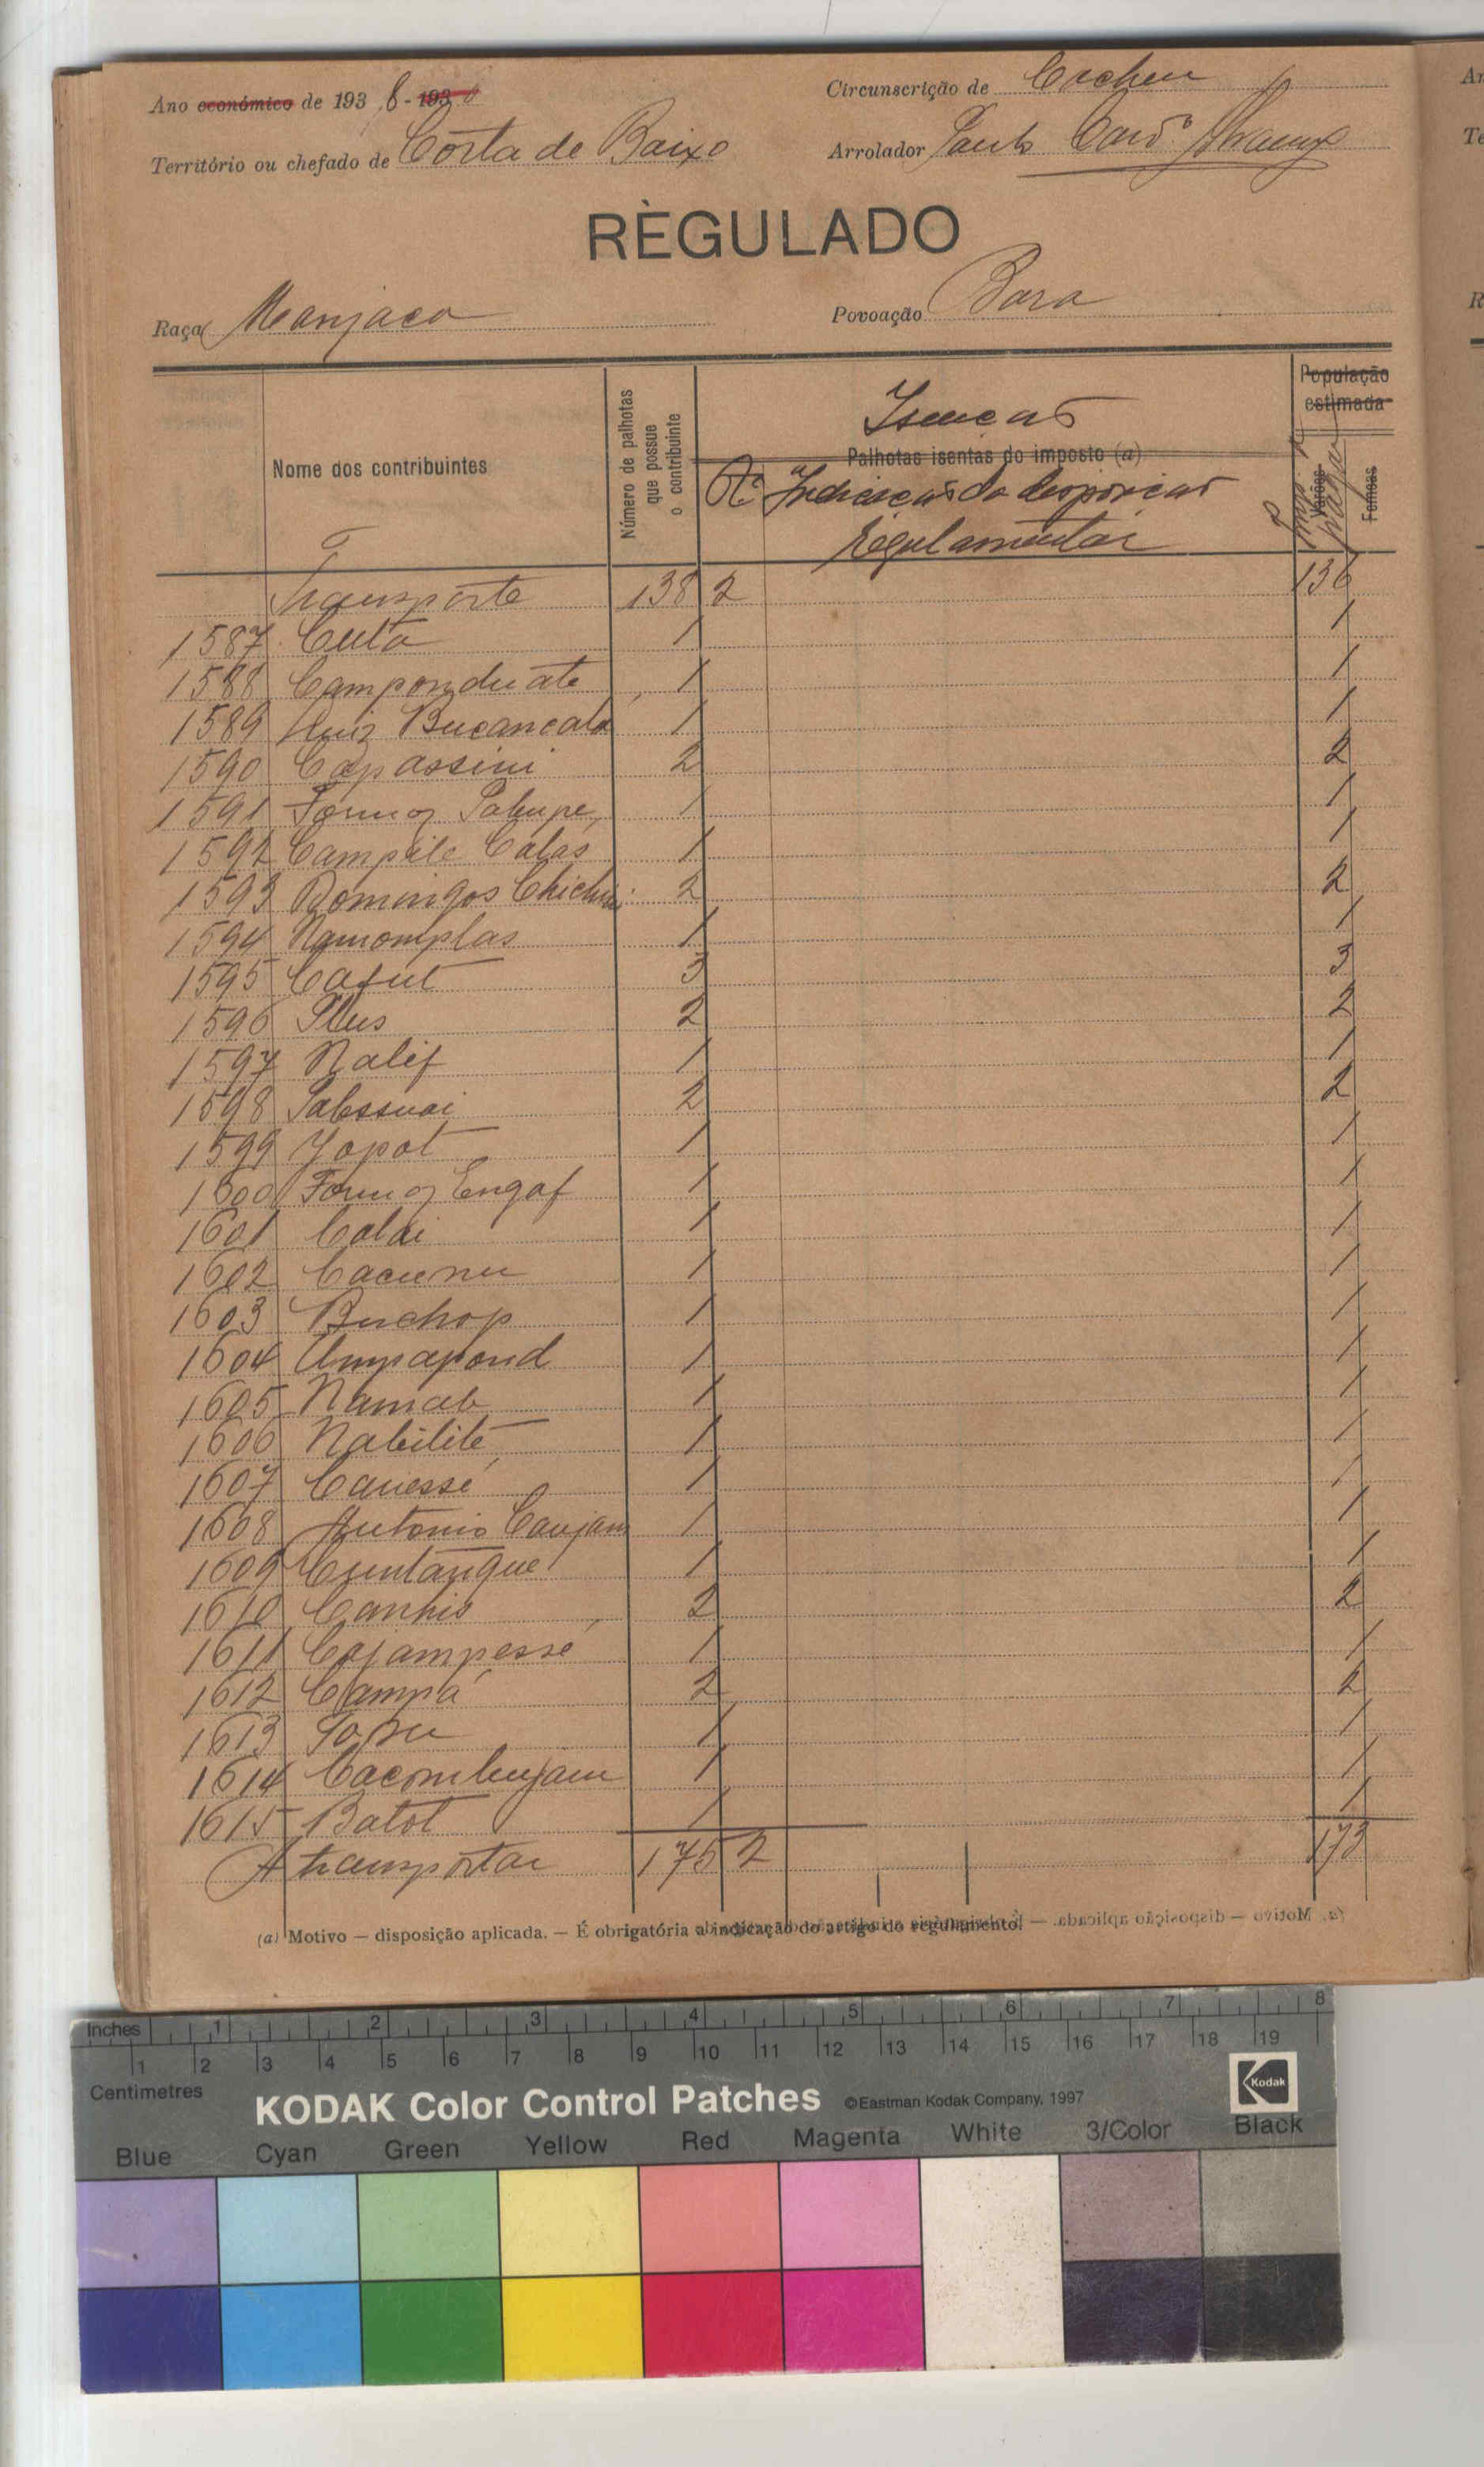 Ano económico de 193 8 - 193
Circunscrição de Cacheu
Território ou chefado de Costa de Baixo
Arrolador Paulo
RÈGULADO
Raça Manjaca
Povoação Bara
Nome dos contribuintes
Número de palhotas que possue o contribuinte
Isenção
Palhotas isentas do imposto (a)
Nº Indicação da disposição
Regulamentar
População estimada
Varões
Fêmeas
Transporte 138 2 136
1587 Cuta 1 1
1588 Camponduate 1 1
1589 Luiz Bucancala 1 1
1590 Capassini 2 2
1591 1 1
1592 Campile Calas 1 1
1593 Domingos 2 2
1594 Namomplas 1 1
1595 Cafut 3 3
1596 Plus 2 2
1597 Nalif 1 1
1598 2 2
1599 Yopot 1 1
1600 Engaf 1 1
1601 Calai 1 1
1602 Cacumu 1 1
1603 Buchop 1 1
1604 Umpapond 1 1
1605 Namab 1 1
1606 Nabilite 1 1
1607 Canessé 1 1
1608 Antonio Canjam 1 1
1609 Cuntangue 1 1
1610 Canhis 2 2
1611 Cajampessé 1 1
1612 Campá 2 2
1613 1 1
1614 Cacombujam 1 1
1615 Batot 1 1
A transportar 175 2 173
(a) Motivo — disposição aplicada. — É obrigatória a indicação do artigo do regulamento.
Inches 1 2 3 4 5 6 7 8
1 2 3 4 5 6 7 8 9 10 11 12 13 14 15 16 17 18 19
Centimetres
KODAK Color Control Patches ©Eastman Kodak Company, 1997 Kodak
Blue Cyan Green Yellow Red Magenta White 3/Color Black